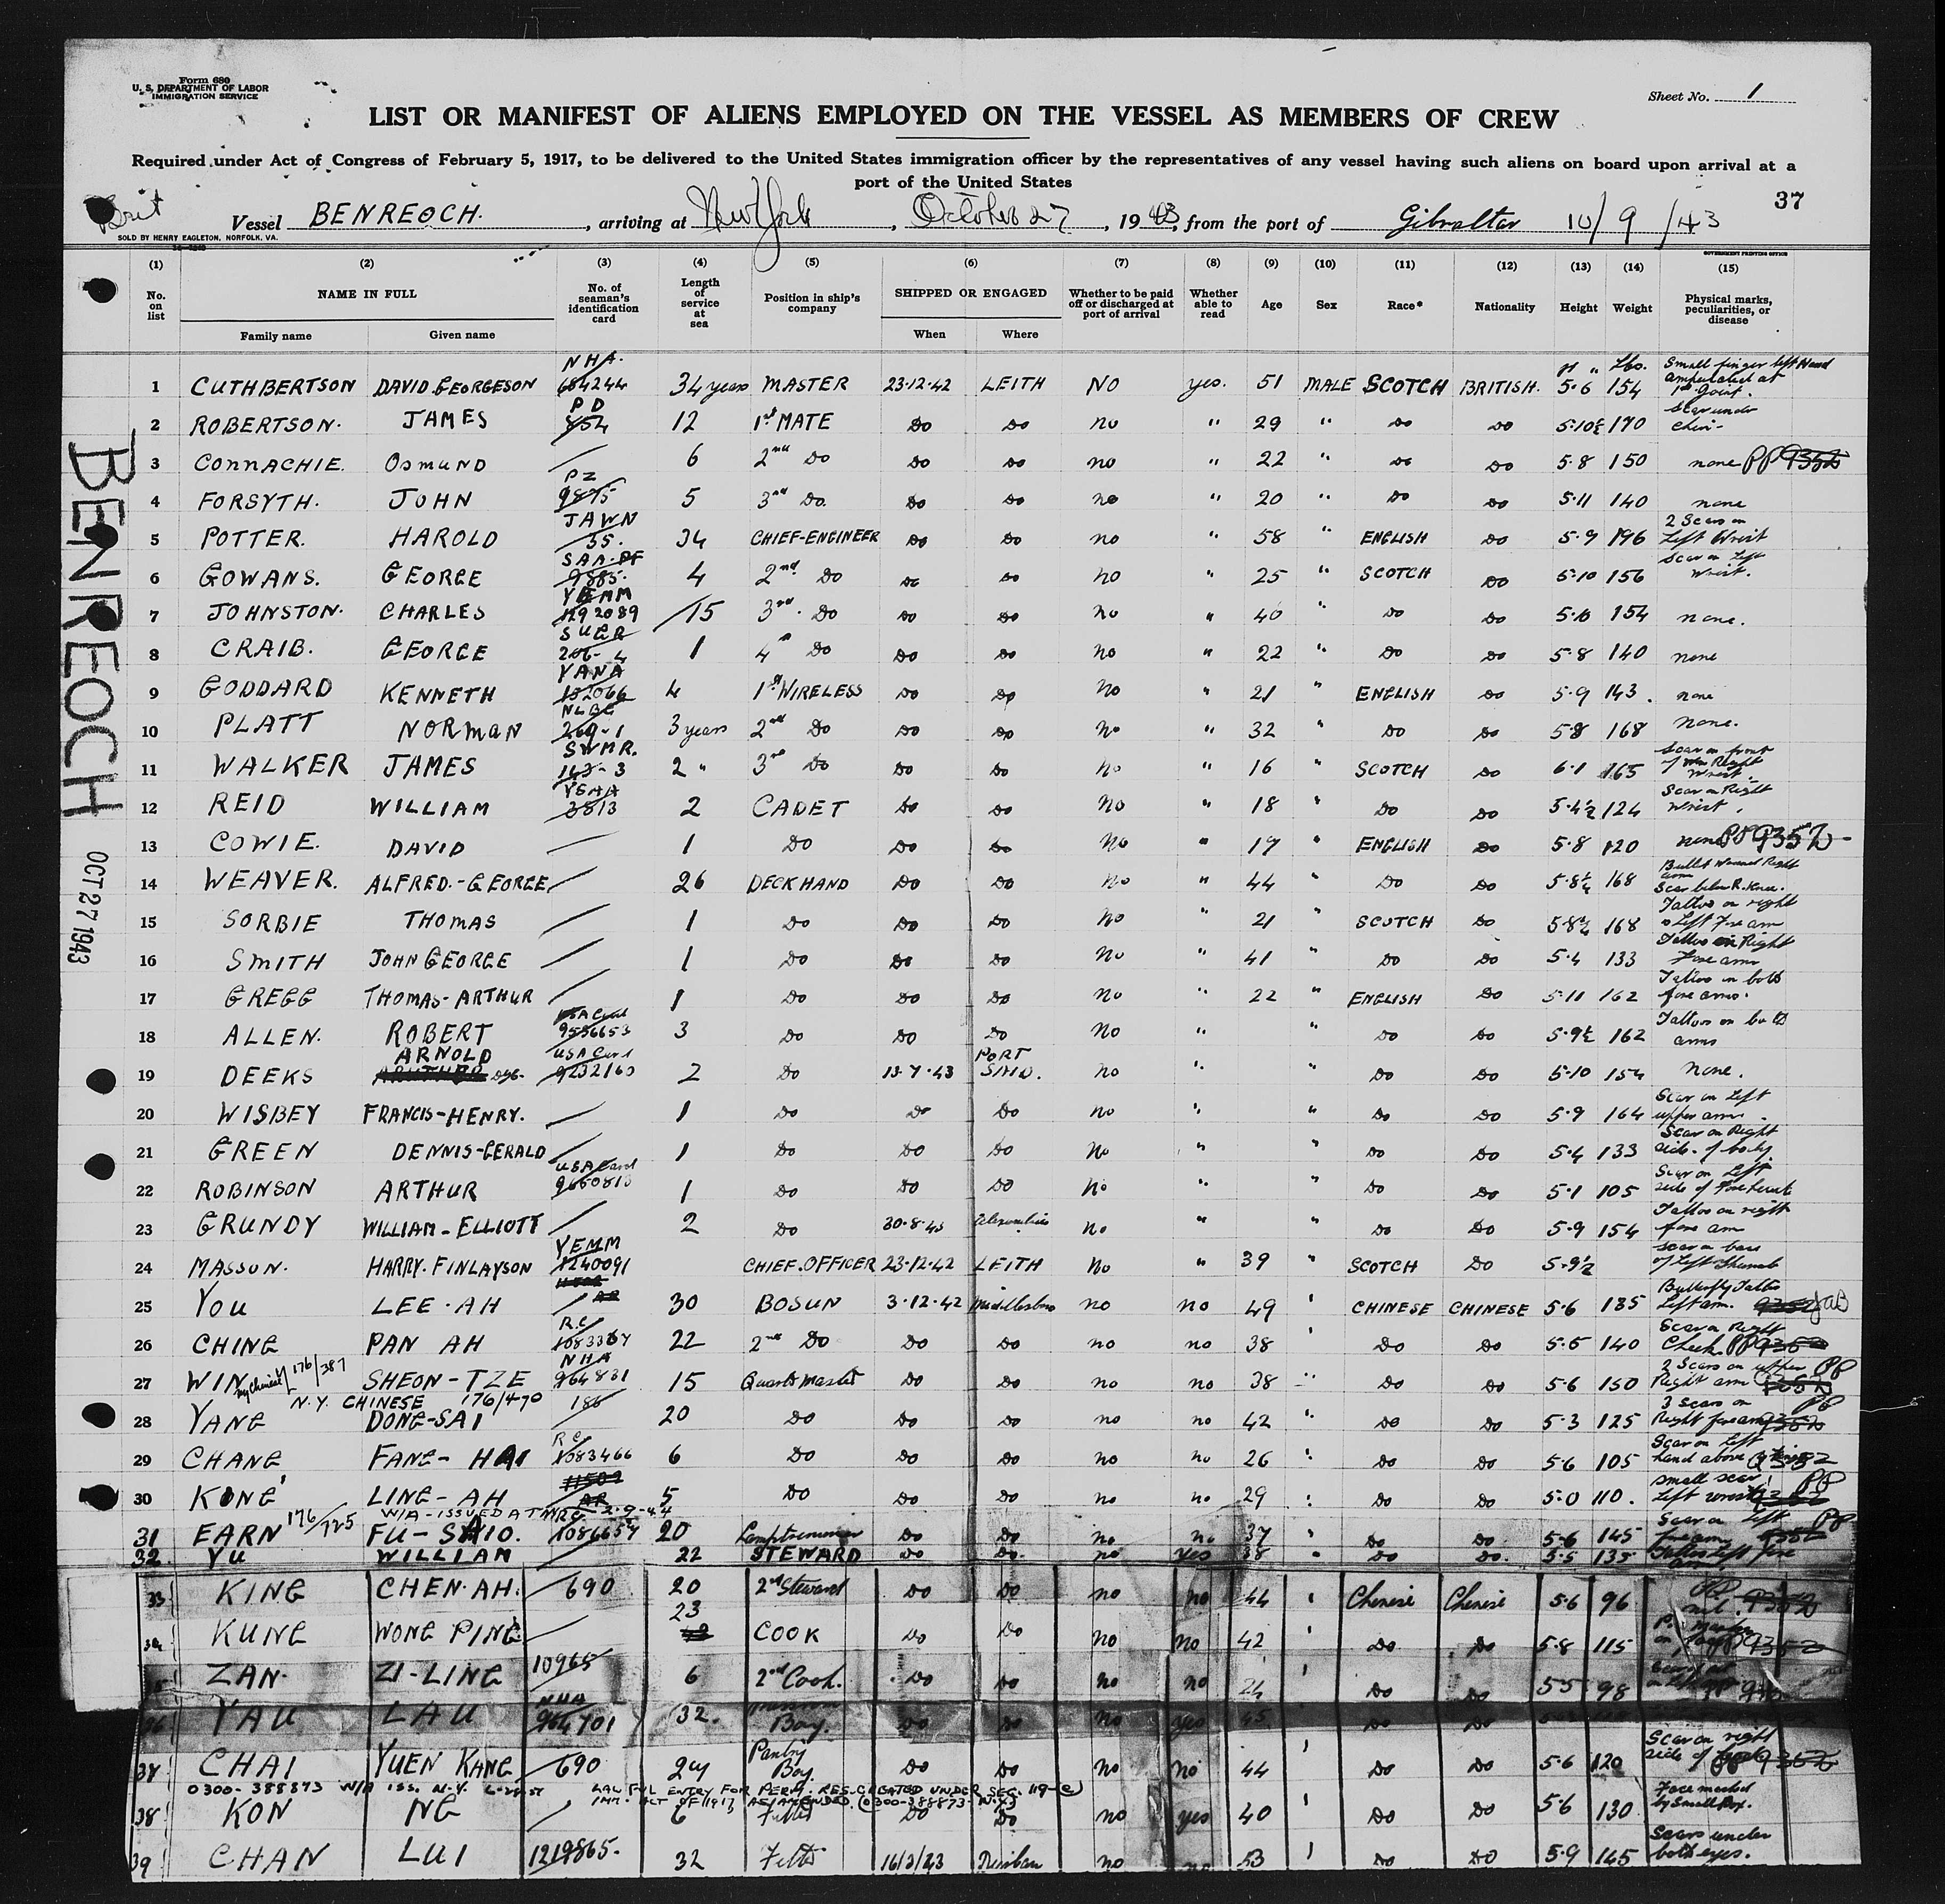 Form 680
U. S. DEPARTMENT OF LABOR
IMMIGRATION SERVICE
Sheet No. 1
LIST OR MANIFEST OF ALIENS EMPLOYED ON THE VESSEL AS MEMBERS OF CREW
Required under Act of Congress of February 5, 1917, to be delivered to the United States immigration officer by the representatives of any vessel having such aliens on board upon arrival at a
port of the United States
37
Brit
Vessel BENREOCH. , arriving at New York , October 27 , 1943, from the port of Gibraltar 10/9/43
SOLD BY HENRY EAGLETON, NORFOLK, VA.
GOVERNMENT PRINTING OFFICE
(1) (2) (3) (4) (5) (6) (7) (8) (9) (10) (11) (12) (13) (14) (15)
No. on list NAME IN FULL No. of seaman's identification card Length of service at sea Position in ship's company SHIPPED OR ENGAGED Whether to be paid off or discharged at port of arrival Whether able to read Age Sex Race* Nationality Height Weight Physical marks, peculiarities, or disease
Family name Given name When Where
1 CUTHBERTSON DAVID.GEORGESON NHA. 34 years MASTER 23-12-42 LEITH NO yes. 51 MALE SCOTCH BRITISH. 5-6 154 Small finger left Hand amputated at 1st joint.
2 ROBERTSON. JAMES PD 854 12 1st MATE Do Do no " 29 " Do Do 5-10½ 170 Scar under chin-
3 CONNACHIE. OSMUND 6 2nd Do Do Do no " 22 " Do Do 5-8 150 none PP 9352
4 FORSYTH. JOHN PZ 9875 5 3rd Do. Do Do no " 20 " Do Do 5-11 140 none
5 POTTER. HAROLD JAWN 55. 34 CHIEF-ENGINEER Do Do no " 58 " ENGLISH Do 5-9 196 2 Scars on Left Wrist
6 GOWANS. GEORGE 4 2nd. Do Do Do no " 25 " SCOTCH Do 5-10 156 Scar on Left wrist.
7 JOHNSTON. CHARLES YEMM 15 3rd. Do Do Do no " 40 " Do Do 5-10 154 none.
8 CRAIB. GEORGE 1 4th Do Do Do no " 22 " Do Do 5-8 140 none
9 GODDARD KENNETH YANA 4 1st WIRELESS Do Do no " 21 " ENGLISH Do 5-9 143. none
10 PLATT NORMAN 269-1 3 years 2nd Do Do Do no " 32 " Do Do 5-8 168 none.
11 WALKER JAMES SWMR. 143-3 2 " 3rd Do Do Do no " 16 " SCOTCH Do 6-1 165 Scar on front of Right wrist.
12 REID WILLIAM 3813 2 CADET Do Do no " 18 " Do Do 5-4½ 124 Scar on Right wrist.
13 COWIE. DAVID 1 Do Do Do no " 17 " ENGLISH Do 5-8 120 none PP 9352
14 WEAVER. ALFRED.-GEORGE 26 DECK HAND Do Do no " 44 " Do Do 168 Bullet Wound Right arm Scar below R. Knee.
15 SORBIE THOMAS 1 Do Do Do no " 21 " SCOTCH Do 5-8½ 168 Tattoo on right & Left Fore arm
16 SMITH JOHN GEORGE 1 Do Do Do no " 41 " Do Do 5-4 133 Tattoo on Right Fore arm
17 GREGG THOMAS-ARTHUR 1 Do Do Do no " 22 " ENGLISH Do 5-11 162 Tattoo on both fore arms.
18 ALLEN. ROBERT USA Card 9556653 3 Do Do Do no " " Do Do 5-9½ 162 Tattoos on both arms
19 DEEKS ARNOLD USA Card 2 Do 13-7-43 PORT SAID. no " " Do Do 5-10 154 none.
20 WISBEY FRANCIS-HENRY. 1 Do Do Do no " " Do Do 5-9 164 Scar on Left upper arm.
21 GREEN DENNIS-GERALD 1 Do Do Do no " " Do Do 5-4 133 Scar on Right side of body.
22 ROBINSON ARTHUR USA Card 1 Do Do Do no " " Do Do 5-1 105 Scar on Left side of Forehead
23 GRUNDY WILLIAM-ELLIOTT 2 Do 30-8-43 Alexandria no " " Do Do 5-9 154 Tattoo on right fore arm
24 MASSON. HARRY.FINLAYSON YEMM 1240091 CHIEF.OFFICER 23-12-42 LEITH no " 39 " SCOTCH Do 5-9½ Scar on base of Left Thumb
25 YOU LEE.AH 30 BOSUN 3-12-42 Middlesboro no no 49 " CHINESE CHINESE 5-6 135 Butterfly Tattoo Left arm.
26 CHING PAN AH R.C. 22 2nd Do Do Do no no 38 " Do Do 5-5 140 Scar on Right Cheek. PP 9352
27 WIN 176/387 SHEON-TZE NHA 964831 15 Quarter Master Do Do no no 38 " Do Do 5-6 150 2 Scars on upper Right arm PP 9352
N.Y. CHINESE 176/470
28 YANG DONG-SAI 186 20 Do Do Do no no 42 " Do Do 5-3 125 3 Scars on Right fore arm PP 9352
29 CHANG FANG-HAI RC 1083466 6 Do Do Do no no 26 " Do Do 5-6 105 Scar on Left hand above 9352
30 KONG LING-AH 5 Do Do Do no no 29 " Do Do 5-0 110. small scar Left wrist PP 9352
W/A-ISSUED AT
31 EARN 176/725 FU-SAIO. 1086657 20 Lamptrimmer Do Do no no 37 " Do Do 5-6 145 Scar on Left fore arm PP 9352
32 YU WILLIAM 22 STEWARD Do Do. no yes 38 " Do Do. 5-5 135 Tattoo Left fore arm
33 KING CHEN.AH. 690 20 2nd Steward Do Do no no 44 " Chinese Chinese 5-6 96 nil. PP 9352
34 KUNG WONG PING 23 COOK Do Do no no 42 Do Do 5-8 115 PP 9352
ZAN. ZI-LING 10965 6 2nd Cook. Do Do no no " Do Do 5-5 98
36 YAU LAU NHA 964701 32. Boy. Do Do no yes 45 Do Do
37 CHAI YUEN KANG 690 Pantry Boy Do Do no no 44 " Do Do 5-6 120 Scar on right side of PP 9352
0300-388873 W/A ISS. N.Y. LAWFUL ENTRY FOR PERM. RES. CREATED UNDER SEC. 119-(c)
IMM. ACT OF 1917, AS AMENDED. (0300-388873- N.Y.)
38 KON NG 6 Do Do no yes 40 " Do Do 5-6 130. Face marked by Small Pox.
39 CHAN LUI 1219865. 32 16/3/43 Durban no 53 " Do Do 5-9 145 Scars under both eyes.
BENREOCH OCT 27 1943